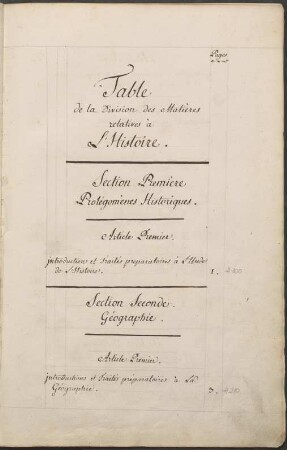 Pages
Table
de la Division des Matières
relatives à
L'Histoire.
Section Première
Prolégomènes Historiques.
Article Premier.
introduction et traités preparatoires à L'Etude
de L'Histoire. 1.
Section Seconde.
Géographie.
Article Premier.
introductions et traités préparatoires à La
Géographie. 3.